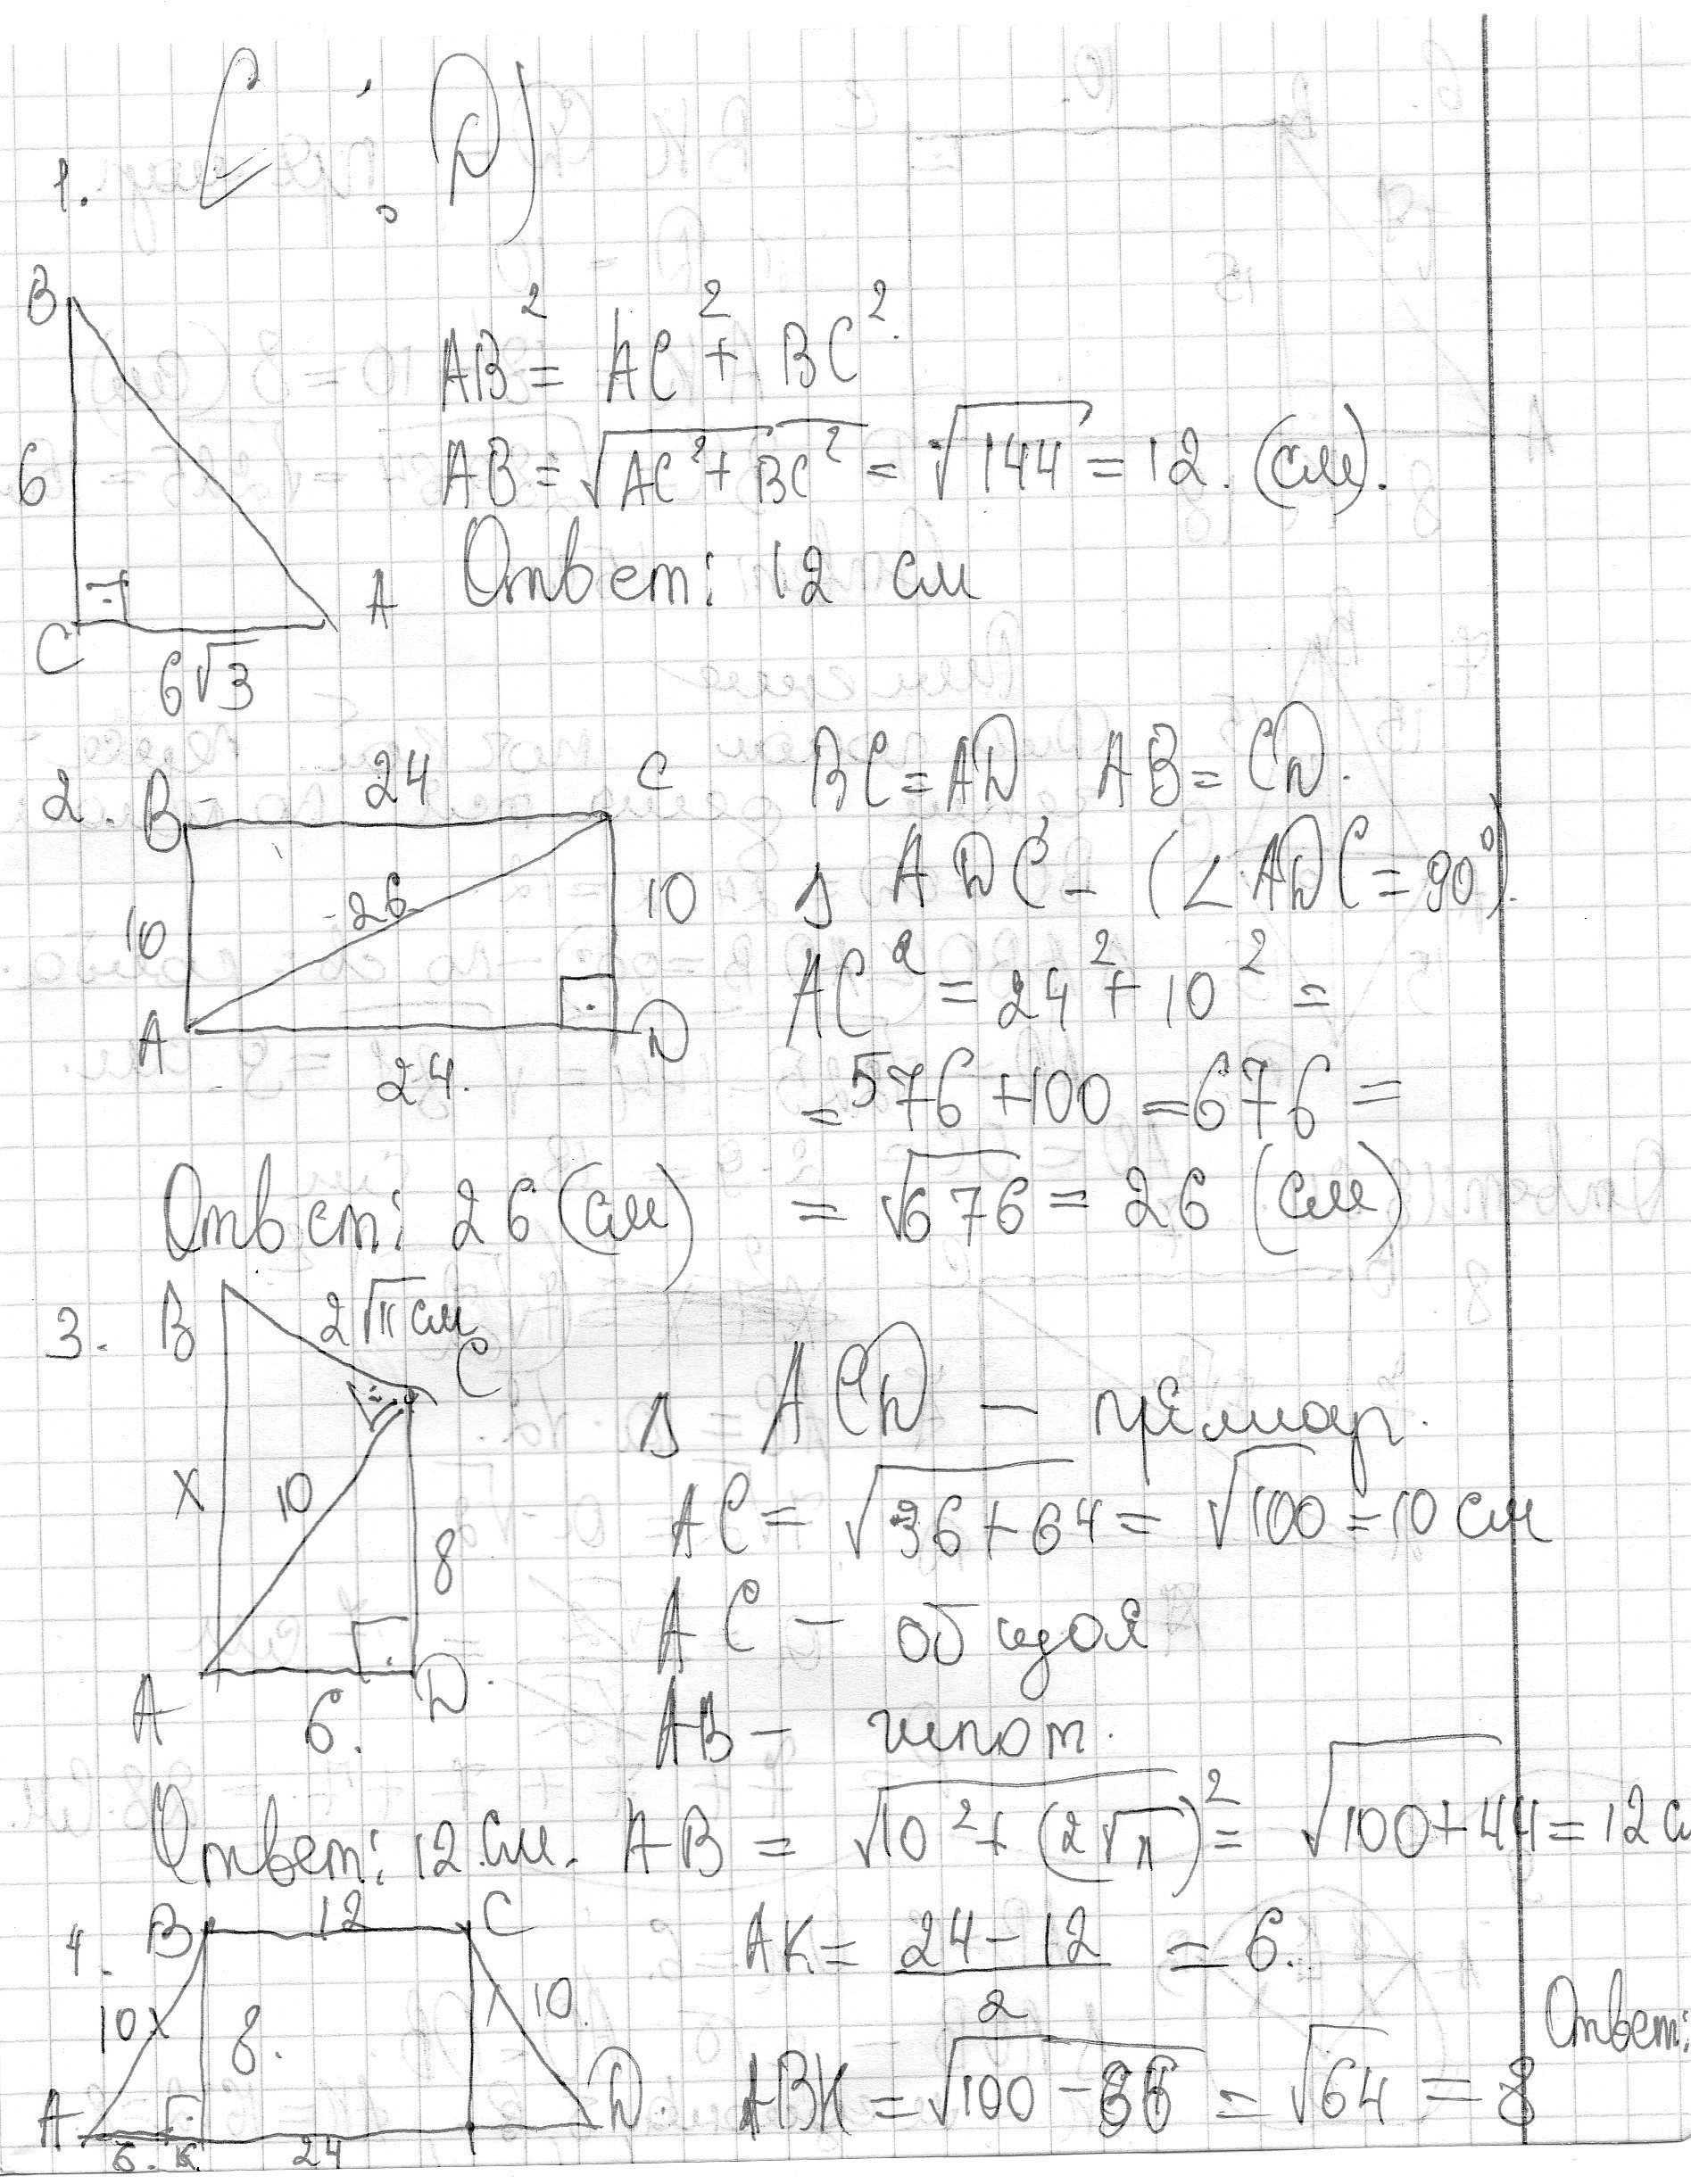 1.
B
6
C
6√3
A
AB² = AC² + BC².
AB = √AC² + BC² = √144 = 12. (см).
Ответ: 12 см
2. B 24 C
10 26 10
A 24. D
BC = AD AB = CD.
Δ ADC - (∠ADC = 90°).
AC² = 24² + 10² =
= 576 + 100 = 676 =
= √676 = 26 (см)
Ответ: 26 (см)
3. B 2√11 см C
X 10 8
A 6. D.
Δ ACD —
AC = √36 + 64 = √100 = 10 см
AC - общая
AB - гипот.
AB = √10² + (2√11)² = √100 + 44 = 12 с
Ответ: 12 см.
4. B 12 C
10 8. 10
A 6. K 24 D.
AK = 24 - 12 / 2 = 6.
BK = √100 - 36 = √64 = 8
Ответ: